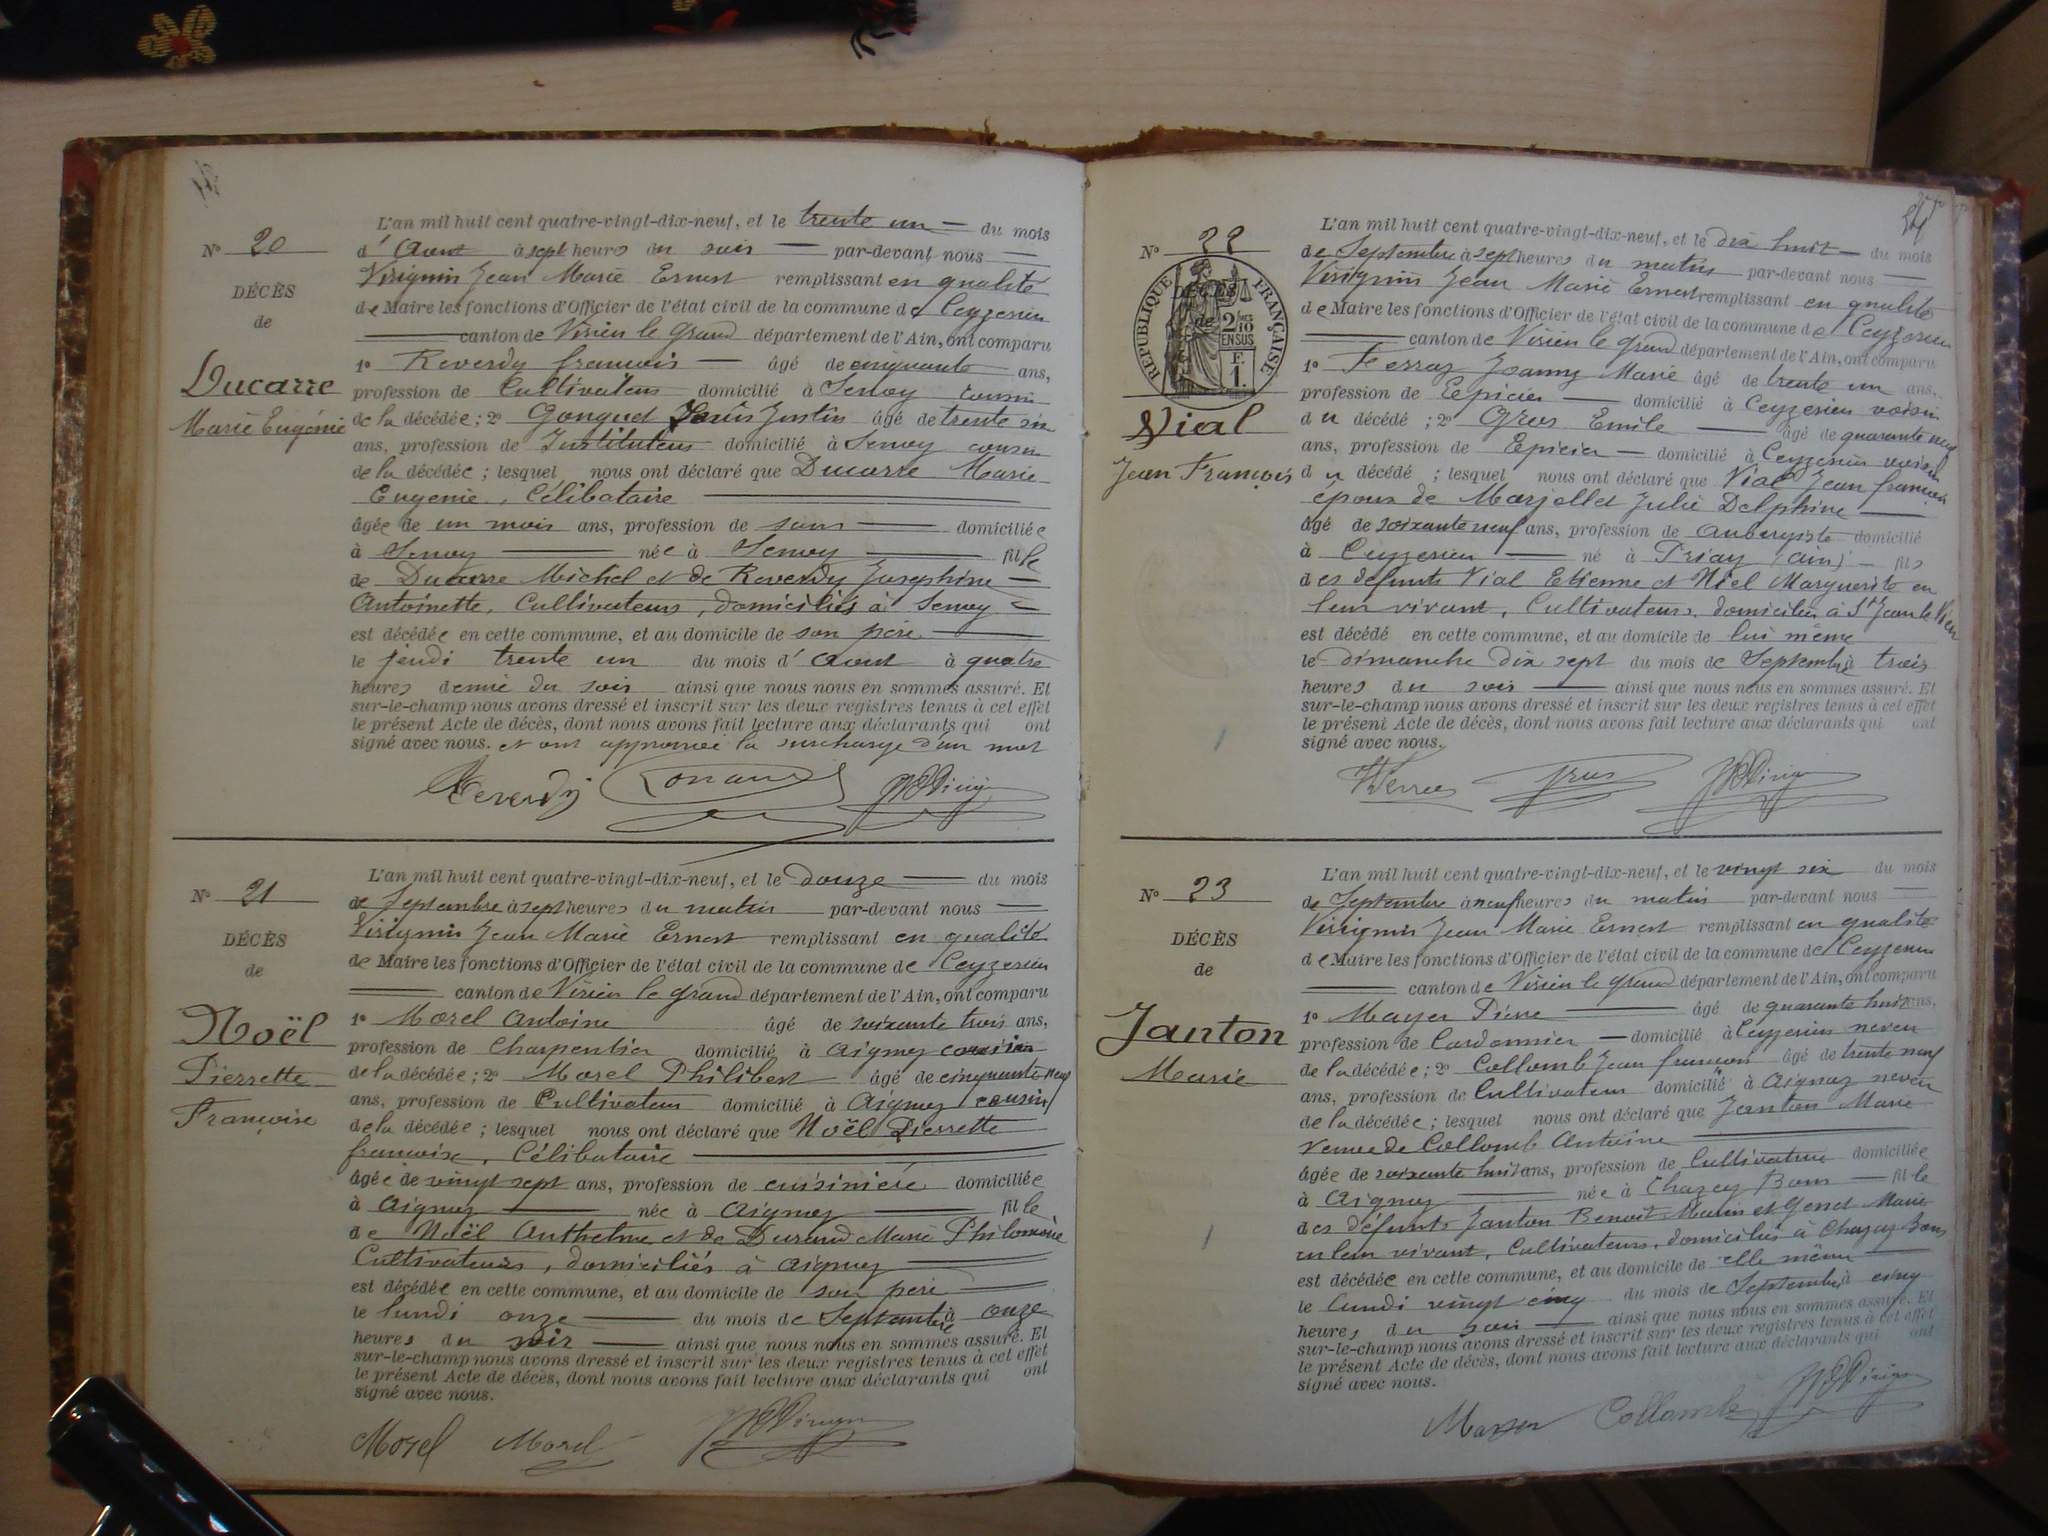 N° 20
DÉCÈS
de
Ducarre
Marie Eugénie
L'an mil huit cent quatre-vingt-dix-neuf, et le trente un du mois
d'Aout à sept heures du soir par-devant nous
Virignin Jean Marie Ernest remplissant en qualité
de Maire les fonctions d'Officier de l'état civil de la commune de Ceyzerieu
canton de Virieu le Grand département de l'Ain, ont comparu
1° Reverdy françois âgé de cinquante ans,
profession de Cultivateur domicilié à Senoy cousin
de la décédée ; 2° Justin âgé de trente six
ans, profession de Instituteur domicilié à Senoy cousin
de la décédée ; lesquel nous ont déclaré que Ducarre Marie
Eugenie, Célibataire
âgée de un mois ans, profession de sans domiciliée
à Senoy née à Senoy fille
de Ducarre Michel et de Reverdy Josephine
Antoinette, Cultivateurs, domiciliés à Senoy
est décédée en cette commune, et au domicile de son père
le jeudi trente un du mois d'Aout à quatre
heures demie du soir ainsi que nous nous en sommes assuré. Et
sur-le-champ nous avons dressé et inscrit sur les deux registres tenus à cet effet
le présent Acte de décès, dont nous avons fait lecture aux déclarants qui ont
signé avec nous. et ont approuvé la surcharge d'un mot
Reverdy
N° 21
DÉCÈS
de
Noël
Pierrette
Françoise
L'an mil huit cent quatre-vingt-dix-neuf, et le douze du mois
de Septembre à sept heures du matin par-devant nous
Virignin Jean Marie Ernest remplissant en qualité
de Maire les fonctions d'Officier de l'état civil de la commune de Ceyzerieu
canton de Virieu le Grand département de l'Ain, ont comparu
1° Morel Antoine âgé de soixante trois ans,
profession de Charpentier domicilié à Aignoz cousin
de la décédée ; 2° Morel Philibert âgé de cinquante neuf
ans, profession de Cultivateur domicilié à Aignoz cousin
de la décédée ; lesquel nous ont déclaré que Noël Pierrette
françoise, Célibataire
âgée de vingt sept ans, profession de cuisinière domiciliée
à Aignoz née à Aignoz fille
de Noël Anthelme et de Durand Marie Philomène
Cultivateurs, domiciliés à Aignoz
est décédée en cette commune, et au domicile de son père
le lundi onze du mois de Septembre à onze
heures du soir ainsi que nous nous en sommes assuré. Et
sur-le-champ nous avons dressé et inscrit sur les deux registres tenus à cet effet
le présent Acte de décès, dont nous avons fait lecture aux déclarants qui ont
signé avec nous.
Morel Morel
N° 22
RÉPUBLIQUE FRANÇAISE
2/10 EN SUS
F. 1.
Vial
Jean François
L'an mil huit cent quatre-vingt-dix-neuf, et le dix huit du mois
de Septembre à sept heures du matin par-devant nous
Virignin Jean Marie Ernest remplissant en qualité
de Maire les fonctions d'Officier de l'état civil de la commune de Ceyzerieu
canton de Virieu le Grand département de l'Ain, ont comparu
1° Ferraz Joanny Marie âgé de trente un ans,
profession de Epicier domicilié à Ceyzerieu voisin
du décédé ; 2° Gros Emile âgé de quarante neuf
ans, profession de Epicier domicilié à Ceyzerieu voisin
du décédé ; lesquel nous ont déclaré que Vial Jean françois
époux de Marjollet Julie Delphine
âgé de soixante neuf ans, profession de Aubergiste domicilié
à Ceyzerieu né à Priay (Ain) fils
des défunts Vial Etienne et Niel Marguerite en
leur vivant, Cultivateurs, domiciliés à St Jean le Vieux
est décédé en cette commune, et au domicile de lui même
le dimanche dix sept du mois de Septembre à trois
heures du soir ainsi que nous nous en sommes assuré. Et
sur-le-champ nous avons dressé et inscrit sur les deux registres tenus à cet effet
le présent Acte de décès, dont nous avons fait lecture aux déclarants qui ont
signé avec nous.
Gros
N° 23
DÉCÈS
de
Janton
Marie
L'an mil huit cent quatre-vingt-dix-neuf, et le vingt six du mois
de Septembre à neuf heures du matin par-devant nous
Virignin Jean Marie Ernest remplissant en qualité
de Maire les fonctions d'Officier de l'état civil de la commune de Ceyzerieu
canton de Virieu le Grand département de l'Ain, ont comparu
1° Mayer Pierre âgé de quarante huit ans,
profession de Cordonnier domicilié à Ceyzerieu neveu
de la décédée ; 2° Collomb Jean françois âgé de trente neuf
ans, profession de Cultivateur domicilié à Aignoz neveu
de la décédée ; lesquel nous ont déclaré que Janton Marie
Veuve de Collomb Antoine
âgée de soixante huit ans, profession de Cultivatrice domiciliée
à Aignoz née à Chazey Bons fille
des défunts Janton Benoit Marin et Genet Marie
en leur vivant, Cultivateurs, domiciliés à Chazey Bons
est décédée en cette commune, et au domicile de elle même
le lundi vingt cinq du mois de Septembre à cinq
heures du soir ainsi que nous nous en sommes assuré. Et
sur-le-champ nous avons dressé et inscrit sur les deux registres tenus à cet effet
le présent Acte de décès, dont nous avons fait lecture aux déclarants qui ont
signé avec nous.
Mayer Collomb